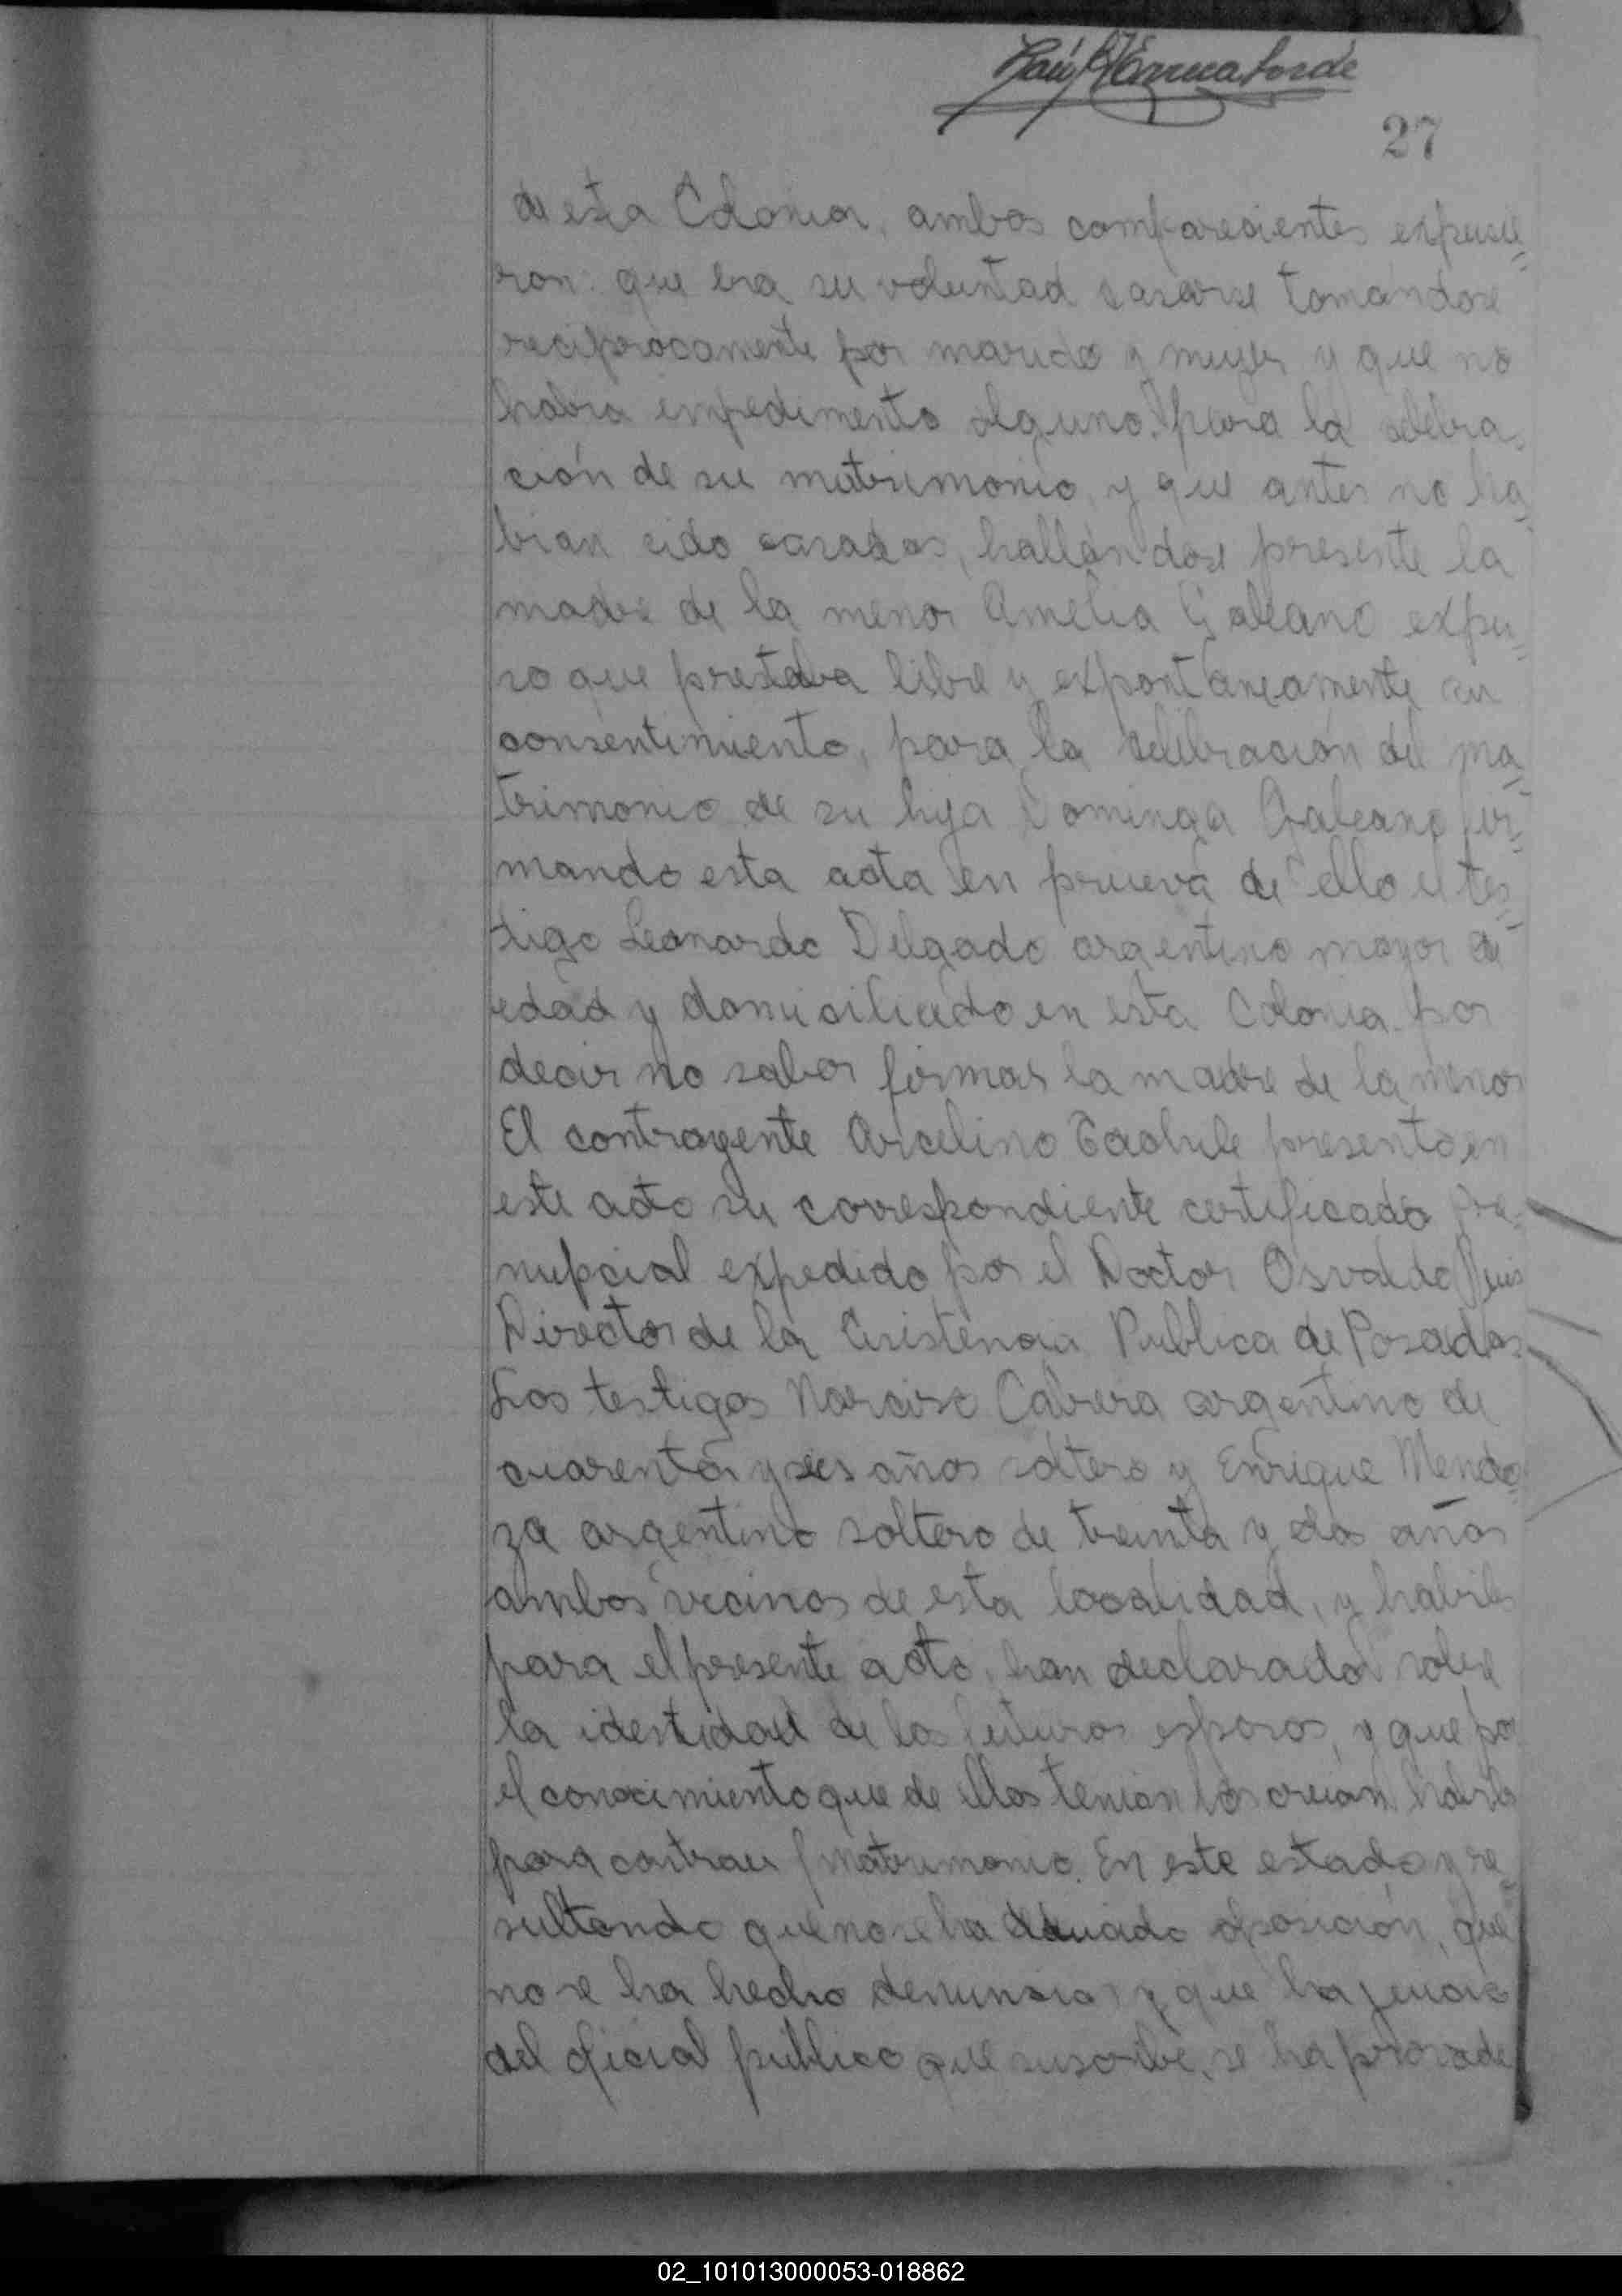 27
de esta Colonia, ambos comparecientes expusie=
ron: que era su voluntad casarse tomandose
reciprocamente por marido y mujer y que no
habia impedimento alguno para la celebra=
ción de su matrimonio, y que antes no ha=
bian sido casados, hallandose presente la
madre de la menor Amelia Galeano expu=
so que prestaba libre y expontaneamente su
consentimiento, para la celibración del ma=
trimonio de su hija Dominga Galeano fir=
mando esta acta en prueva de ello el tes=
tigo Leonardo Delgado argentino mayor de
edad y domiciliado en esta Colonia por
decir no saber firmar la madre de la menor
El contrayente Arcelino presento en
este acto su correspondiente certificado pre=
nupcial expedido por el Doctor Osvaldo
Director de la Asistencia Publica de Posadas
Los testigos Narciso Cabrera argentino de
cuarenta y seis años soltero y Enrique Mendo=
za argentino soltero de treinta y dos años
ambos vecinos de esta localidad, y habiles
para el presente acto, han declarado sobre
la identidad de los futuros esposos, y que por
el conocimiento que de ellos tenian los creian habiles
para contraer matrimonio. En este estado y re=
sultando que no se ha deducido oposición, que
no se ha hecho denuncia y que ha juicio
del oficial público que suscribe, se ha procede
02_101013000053-018862